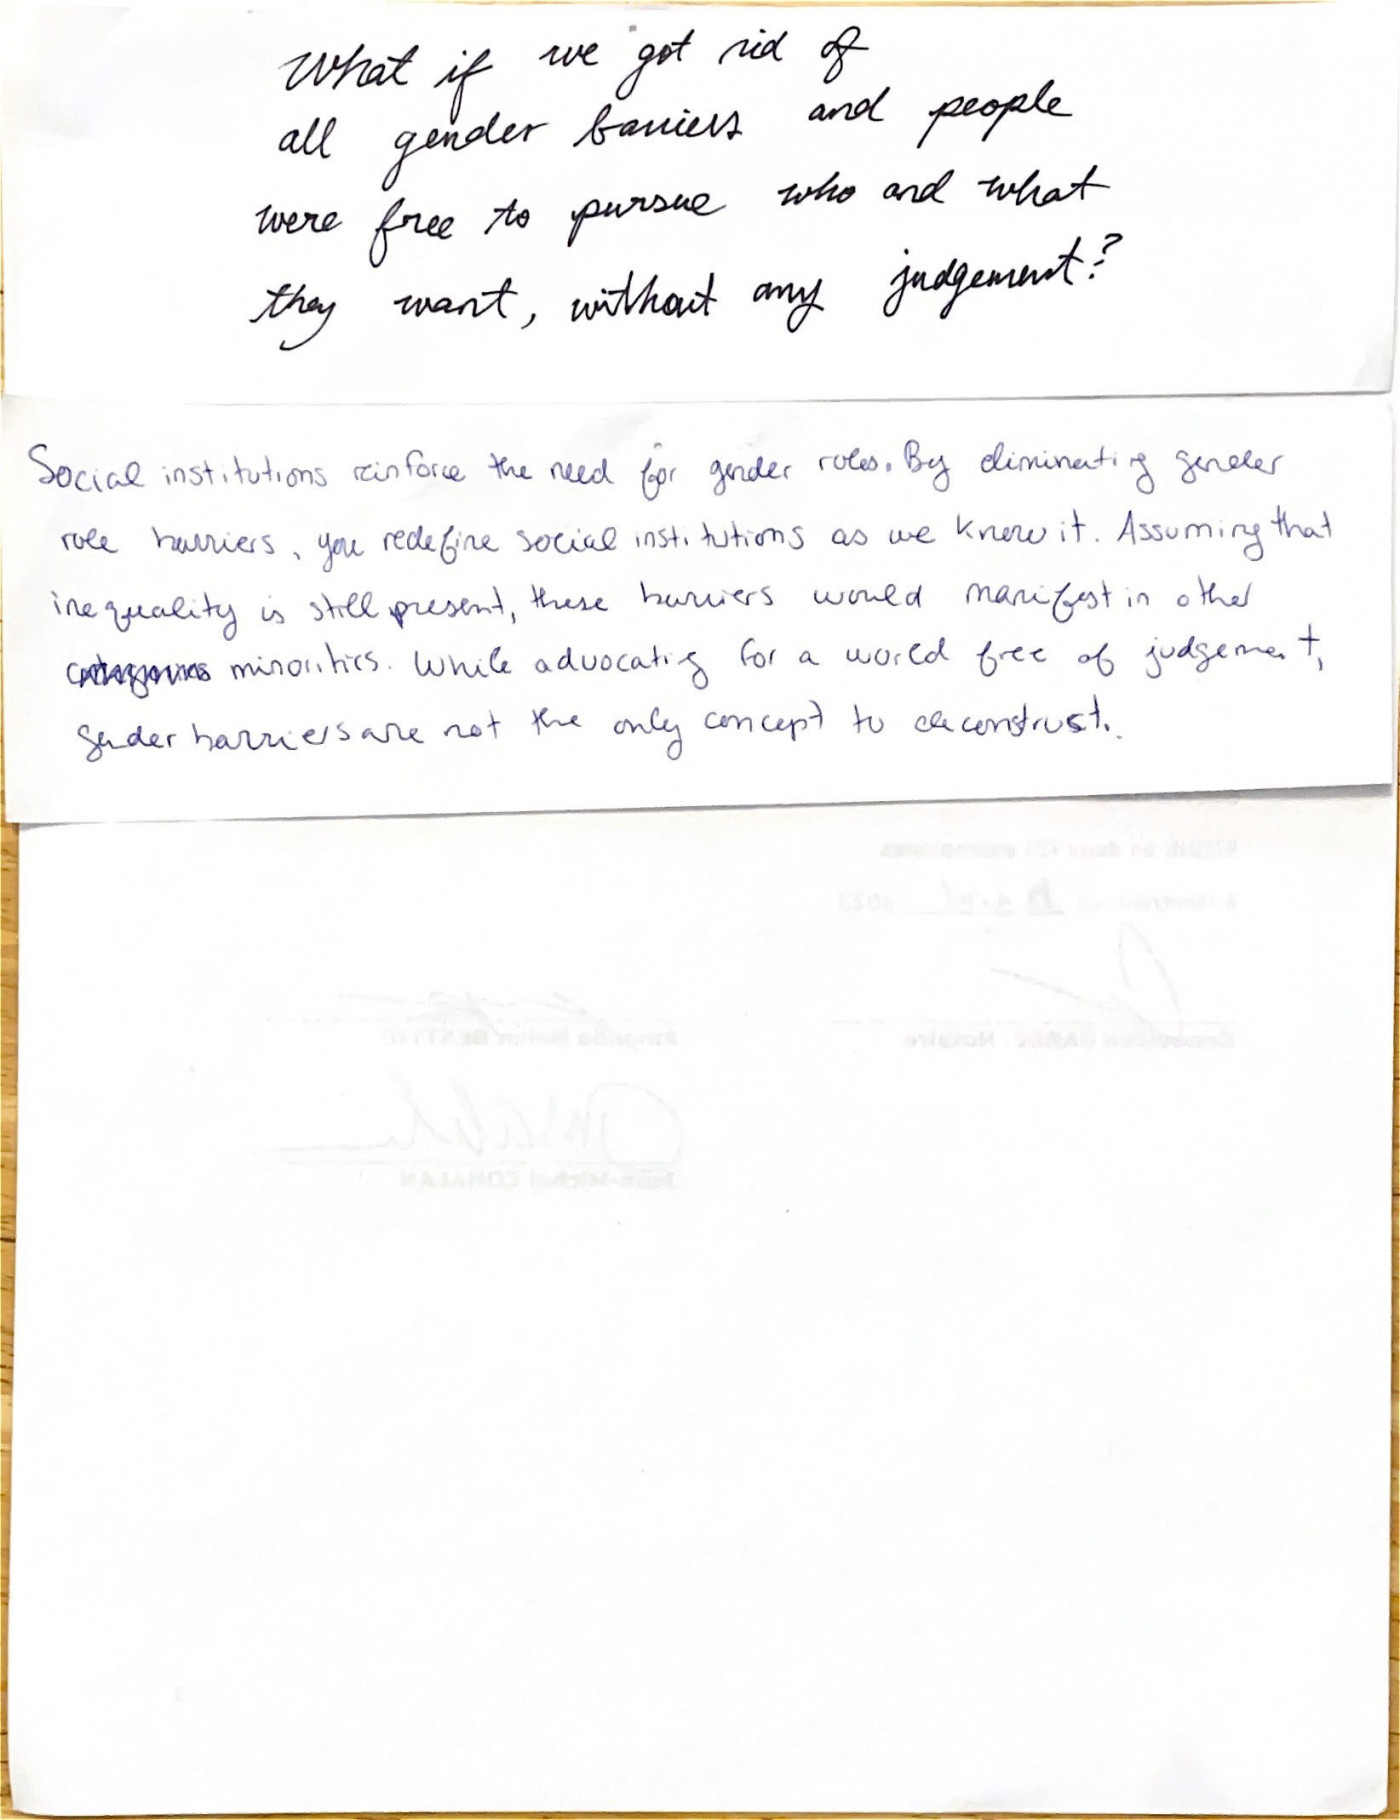 What if we got rid of
all gender barriers and people
were free to pursue who and what
they want, without any judgement?
Social institutions reinforce the need for gender roles. By eliminating gender
role barriers, you redefine social institutions as we know it. Assuming that
inequality is still present, these barriers would manifest in other
minorities. While advocating for a world free of judgement,
gender barriers are not the only concept to deconstruct.
2023
Notaire
Jean-Michel